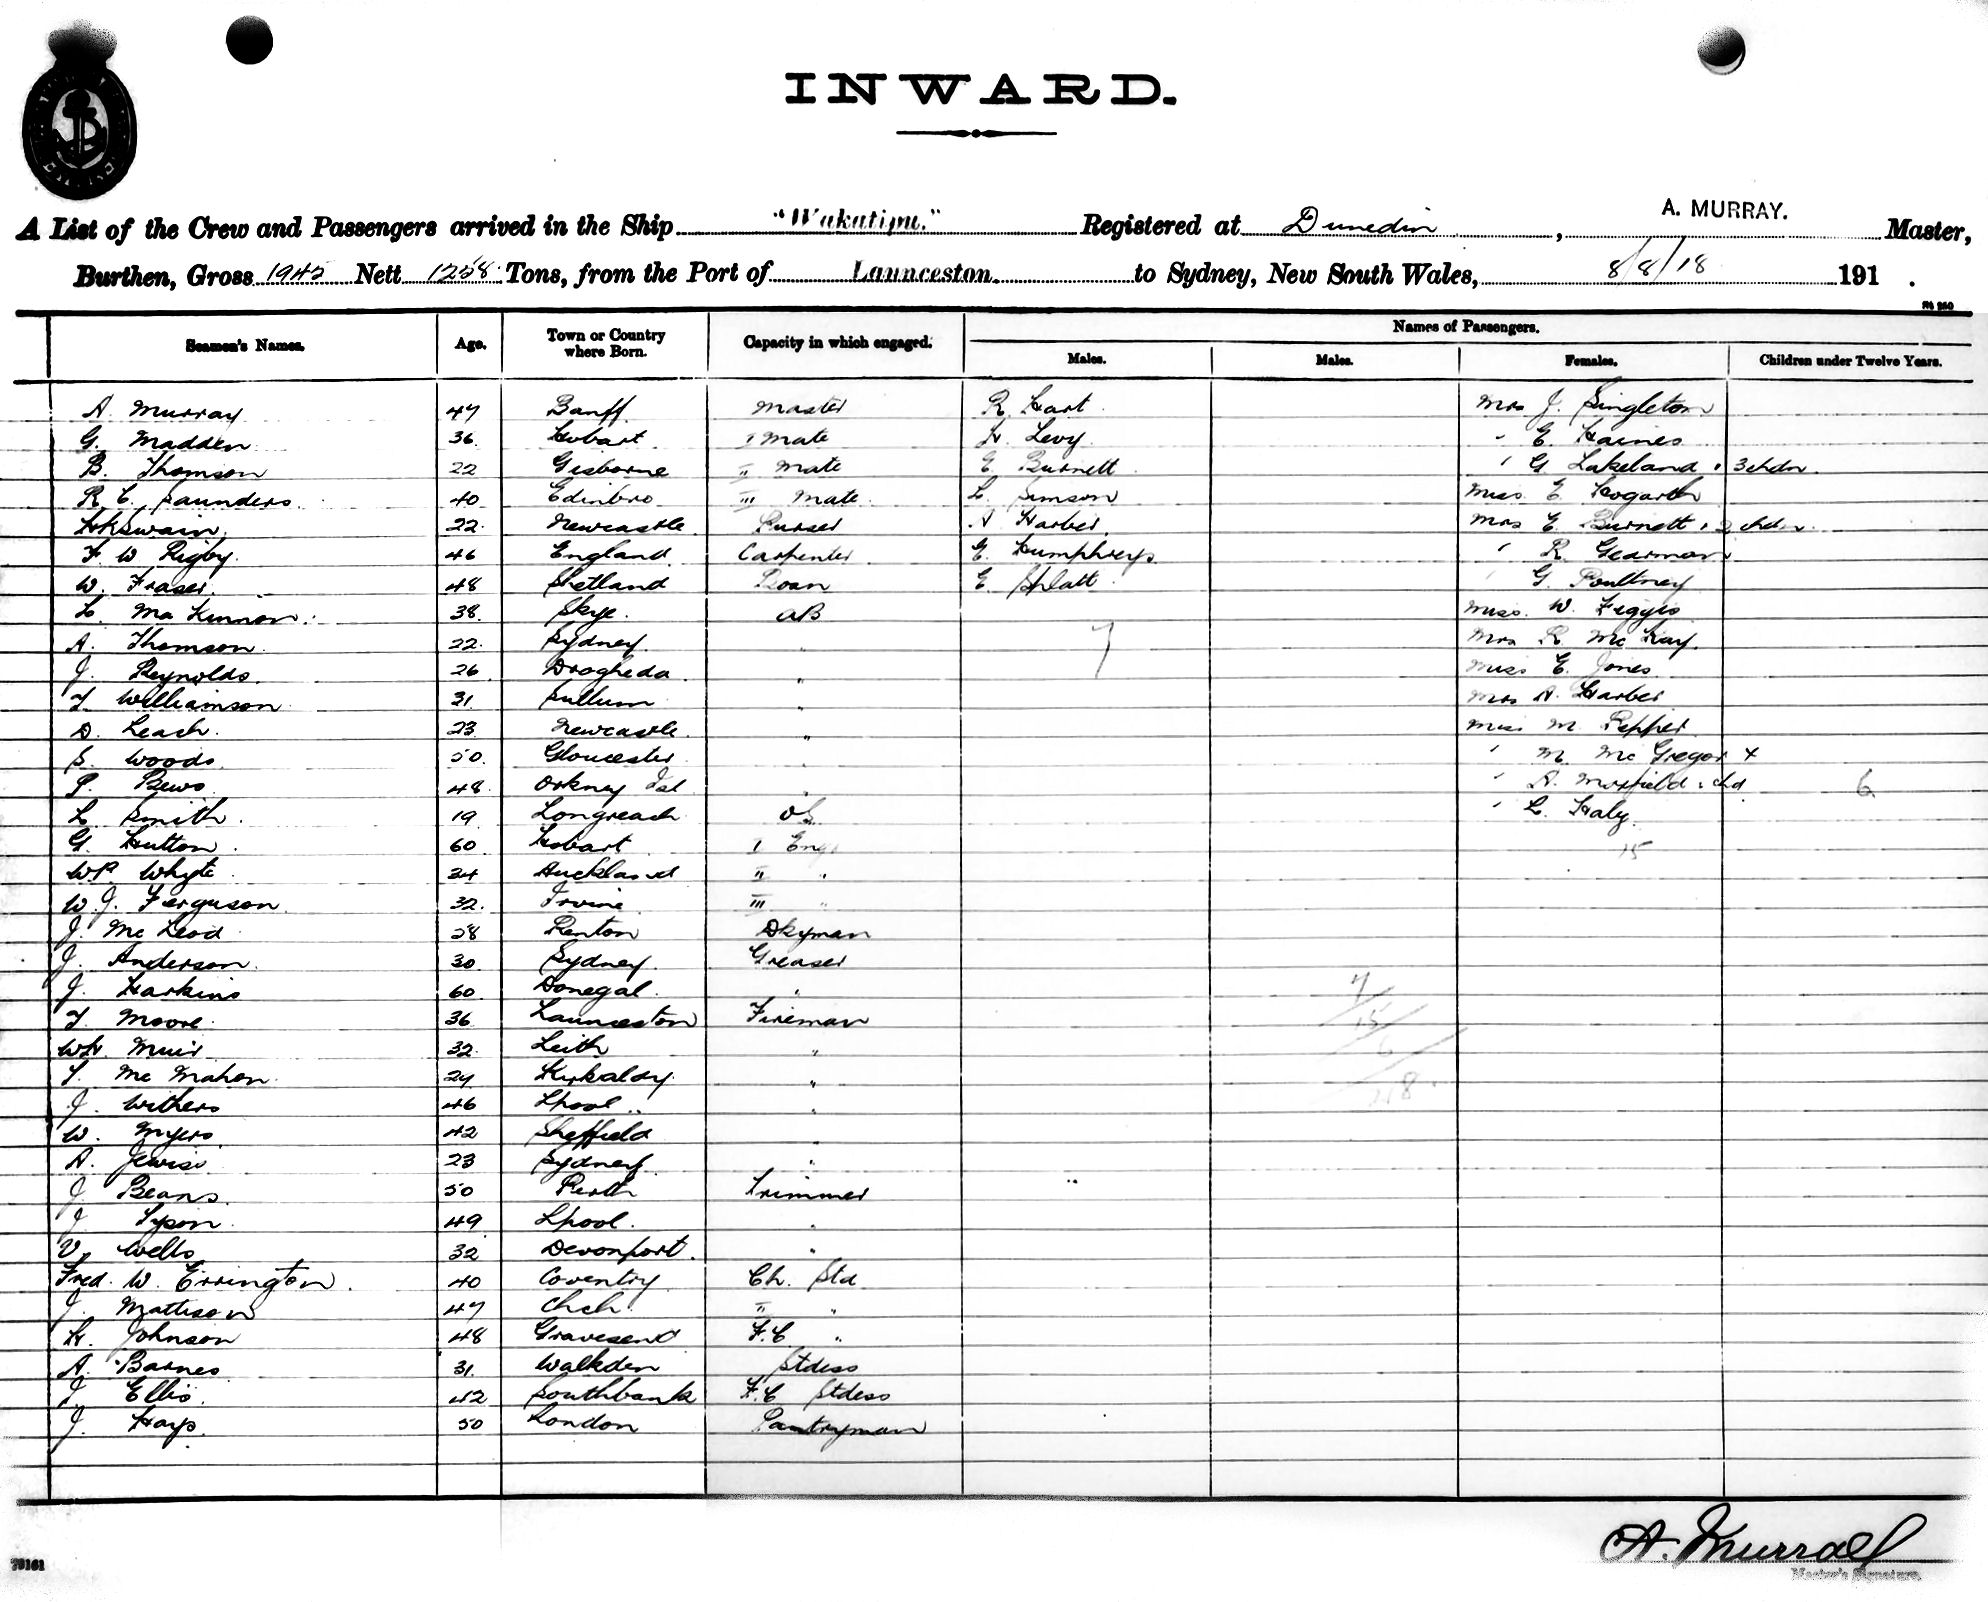 INWARD.
A List of the Crew and Passengers arrived in the Ship "Wakatipu." Registered at Dunedin, A. MURRAY. Master,
Burthen, Gross 1945 Nett 1258 Tons, from the Port of Launceston. to Sydney, New South Wales, 8/8/18 191 .
Names of Passengers.
Seamen's Names. Age. Town or Country where Born. Capacity in which engaged. Males. Males. Females. Children under Twelve Years.
A. Murray 47 Banff Master R. Hart Mrs J. Singleton
G. Madden 36 Hobart I Mate H. Levy " E. Haines
B. Thomson 22 Gisborne II Mate E. Burnett " G. Lakeland & 3 chdn.
R C Saunders 40 Edinbro III Mate L. Simson Miss E. Hogarth
HK Swain 22 Newcastle Purser A Harber Mrs E. Burnett & 2 chdn.
F W Rigby 46 England Carpenter E. Humphreys " R. Gearman
W. Fraser 48 Shetland Bosn E. Splatt " G. Poultney
L. McKinnon 38 Skye AB Miss W. Figgis
A. Thomson 22 Sydney " 7 Mrs R McKay
J. Reynolds 26 Drogheda " Miss E. Jones
T. Williamson 31 Sullum " Mrs A. Harber
D. Leach 23 Newcastle " Miss M. Pepper
S. Woods 50 Gloucester " " M. McGregor +
P. Bews 48 Orkney Isl " " A. Morfield & chd 6
L. Smith 19 Longreach OS " L. Haly
G. Hutton 60 Hobart I Eng 15
WP Whyte 34 Auckland II "
W. J. Ferguson 32 Irvine III "
J. McLeod 28 Renton Dkyman
J. Anderson 30 Sydney Greaser
J. Harkins 60 Donegal " 7
T. Moore 36 Launceston Fireman 15
WH Muir 32 Leith " 6
T. McMahon 24 Kirkaldy " 28
J. Withers 46 Lpool "
W. Myers 42 Sheffield "
A. Jewiss 23 Sydney "
J. Beans 50 Perth Trimmer
J Tyson 49 Lpool "
V. Wells 32 Devonport "
Fred. W. Errington 40 Coventry Ch. Std
J. Mattison 47 Chch II "
H. Johnson 48 Gravesend F.C "
A. Barnes 31 Walkden Stdess
J. Ellis 42 Southbank F.C Stdess
J. Hays 50 London Pantryman
A. Murray
Master's Signature.
79161